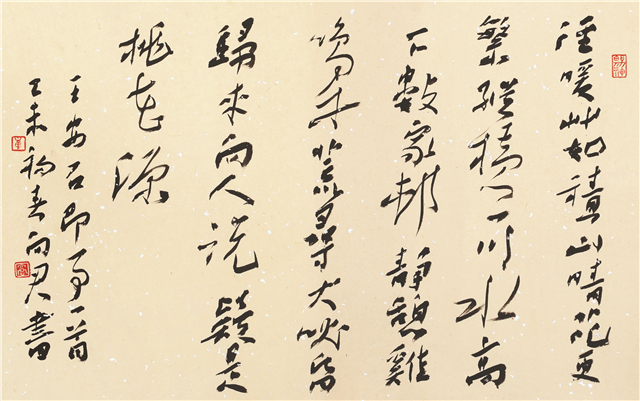 径暖艸如積山晴花更
繁縱橫一川水高
下數家村靜憩雞
鳴午荒尋犬吠昏
歸來向人說疑是
桃花源
王安石即事一首
乙未初春向君書